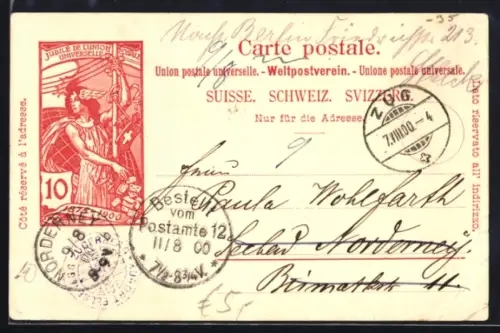 -35
Nach Berlin Friedrichstr. 213.
JUBILÉ DE L'UNION
UNIVERSELLE
10
1875-1900
Côté réservé à l'adresse.
Carte postale.
Union postale universelle. - Weltpostverein. - Unione postale universale.
SUISSE. SCHWEIZ. SVIZZERA.
Nur für die Adresse.
Lato riservato all' indirizzo.
ZUG
7.VIII.00.-4
Paula Wohlfarth
Seebad Norderney
Bismarckstr. 11.
NORDERNEY
9/8
8-9V
Bestellt
vom
Postamte 12
11/8 00
7½-8¾V.
£5,-